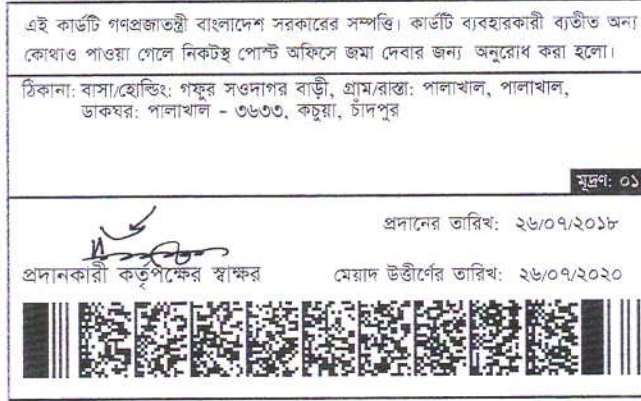 এই কার্ডটি গণপ্রজাতন্ত্রী বাংলাদেশ সরকারের সম্পত্তি। কার্ডটি ব্যবহারকারী ব্যতীত অন্য
কোথাও পাওয়া গেলে নিকটস্থ পোস্ট অফিসে জমা দেবার জন্য অনুরোধ করা হলো।
ঠিকানা: বাসা/হোল্ডিং: গফুর সওদাগর বাড়ী, গ্রাম/রাস্তা: পালাখাল, পালাখাল,
ডাকঘর: পালাখাল - ৩৬৩৩, কচুয়া, চাঁদপুর
মূদ্রণ: ০১
প্রদানের তারিখ: ২৬/০৭/২০১৮
প্রদানকারী কর্তৃপক্ষের স্বাক্ষর
মেয়াদ উত্তীর্ণের তারিখ: ২৬/০৭/২০২০